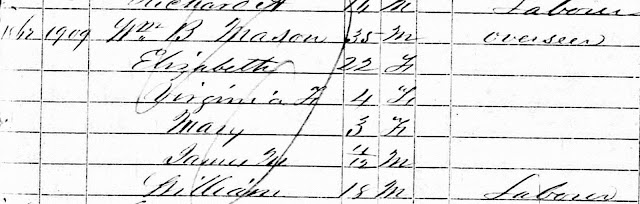 Richard A 14 M Laborer
1909 Wm B Mason 35 M overseer
Elizabeth 22 F
Virginia F 4 F
Mary 3 F
James M 11/12 M
William 18 M Laborer